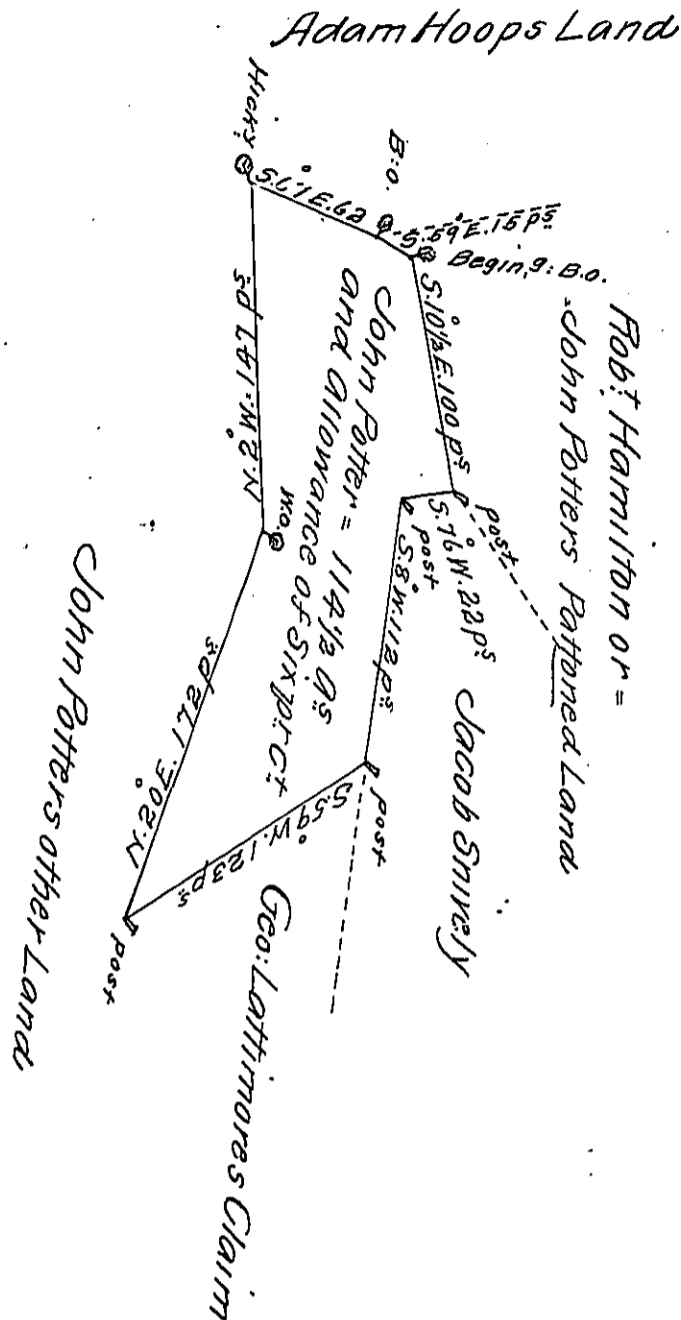 Adam Hoops Land
Hicky:
S. 67° E. 62
B:O.
S. 59° E. 15 ps
Begin,g: B.O.
Robt. Hamilton or =
John Potters Pattoned Land
S. 10½° E. 100 ps
post
S. 76° W. 22 ps
post
Jacob Snively
S. 8° W. 112 ps
post
John Potter = 114½ as
and Allowance of Six pr Ct
N. 2° W. = 147 ps
W.O.
N. 20° E. 172 ps
S. 59° W. 123 ps
post
Geo: Lattimores Claim
John Potters other Land